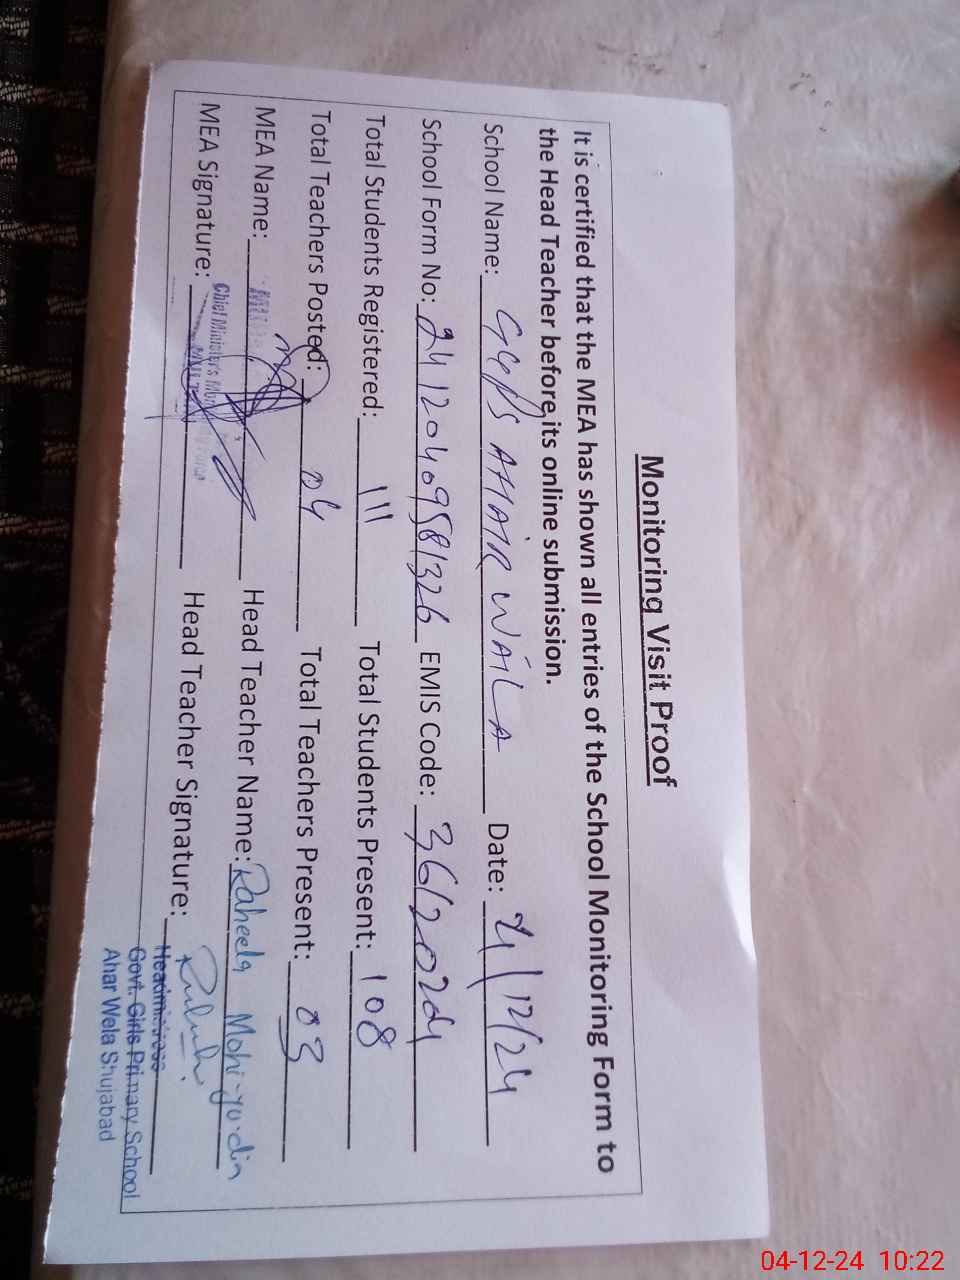 Monitoring Visit Proof
It is certified that the MEA has shown all entries of the School Monitoring Form to
the Head Teacher before its online submission.
School Name: GGPS AHAIR WAILA Date: 4/12/24
School Form No: 24120409581326 EMIS Code: 3612024
Total Students Registered: 111 Total Students Present: 108
Total Teachers Posted: 04 Total Teachers Present: 03
MEA Name: Head Teacher Name: Raheela Mohi-yu-din
MEA Signature: Head Teacher Signature:
Chief Minister's
Headmistress
Govt. Girls Primary School
Ahar Wela Shujabad
04-12-24 10:22